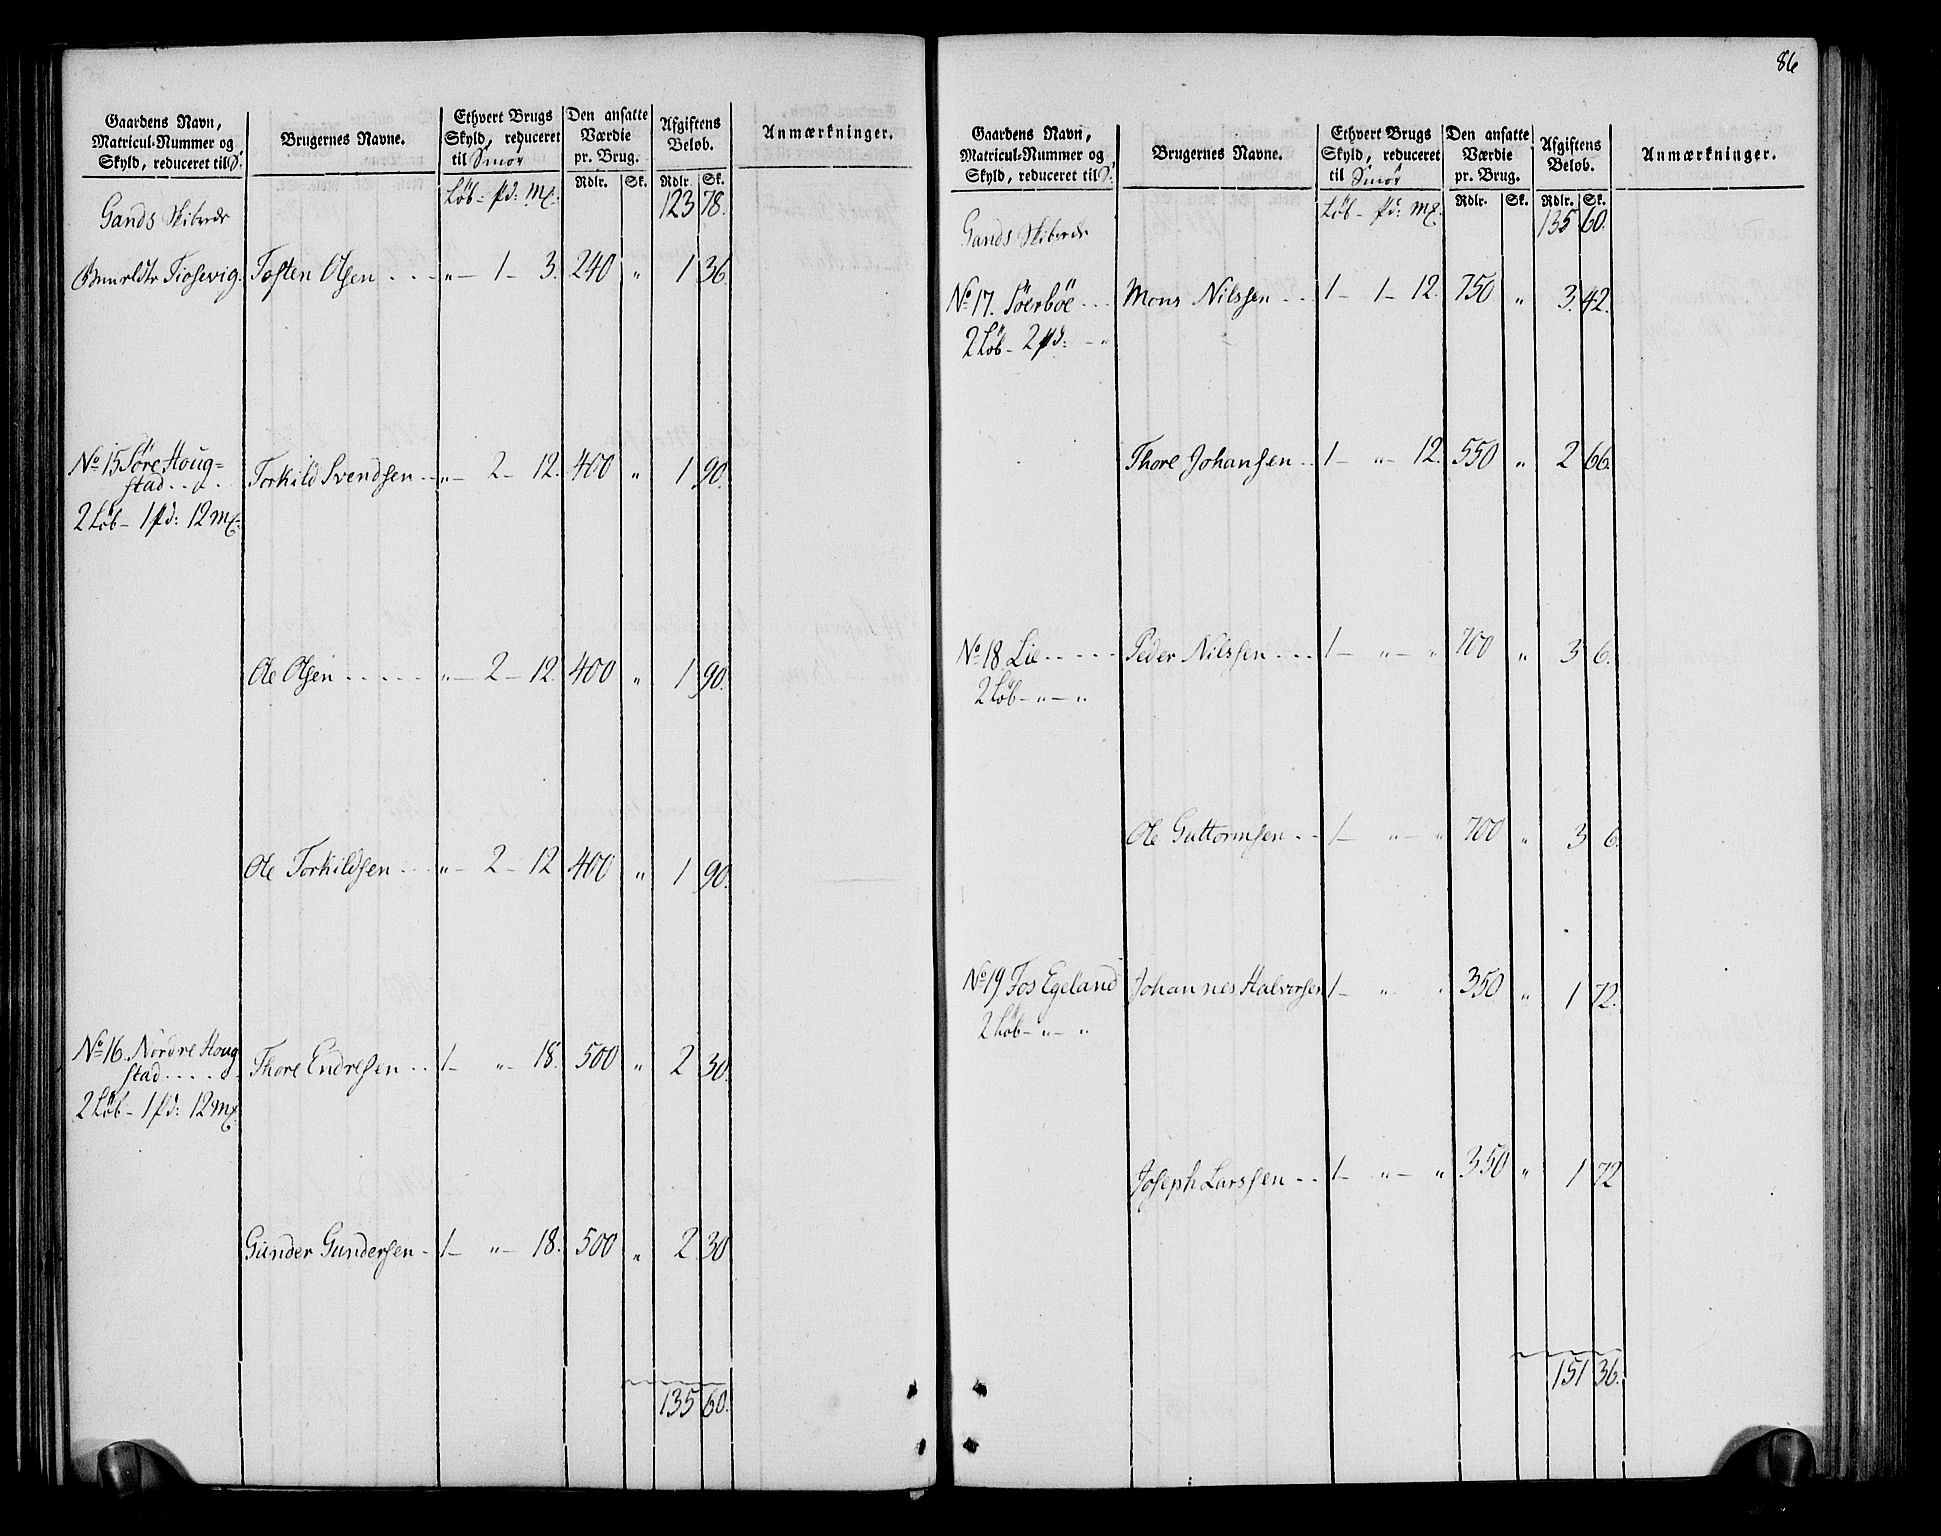 Gaardens Navn, Matricul-Nummer og Skyld, reduceret til S. | Brugernes Navne. | Ethvert Brugs Skyld, reduceret til Smör | Den ansatte Værdie pr. Brug. | Afgiftens Beløb. | Anmærkninger.
Löb - pd: mk. | Rdlr. | Sk. | Rdlr. | Sk.
Gands Skibrede 123 78.
Tiosevig. Tosten Olsen . . . „ - 1 - 3. 240 „ 1 36.
No 15 Söre Houg= Torkild Svendsen . . „ - 2 - 12. 400 „ 1 90.
stad . . . .
2 Löb - 1 pd: 12 mk.
Ole Olsen . . . . . „ - 2 - 12. 400 „ 1 90.
Ole Torkildsen . . . „ - 2 - 12 400 „ 1 90.
No 16. Nordre Houg Thore Endresen . . 1 - „ - 18. 500 „ 2 30.
stad . . . . .
2 Löb - 1 pd: 12 mk.
Gunder Gundersen - 1 - „ - 18. 500 „ 2 30
135 60.
86
Gaardens Navn, Matricul-Nummer og Skyld, reduceret til S. | Brugernes Navne. | Ethvert Brugs Skyld, reduceret til Smör | Den ansatte Værdie pr. Brug. | Afgiftens Beløb. | Anmærkninger.
Löb - pd: mk. | Rdlr. | Sk. | Rdlr. | Sk.
Gands Skibrede 135 60.
No 17. Söerböe . . . Mons Nilssen . . . 1 - 1 - 12. 750 „ 3. 42.
2 Löb - 2 pd: - „
Thore Johansen . . 1 - „ - 12. 550 „ 2 66.
No 18. Lie . . . . . Peder Nilssen . . . 1 - „ - „ 700 „ 3 6.
2 Löb - „ - „
Ole Guttormsen . . 1 - „ - „ 700 „ 3 6.
No 19. Fos Egeland Johannes Halvorsen 1 - „ „ 350 „ 1 72.
2 Löb - „ - „
Joseph Larssen . . 1 - „ - „ 350 „ 1 72
151 36.